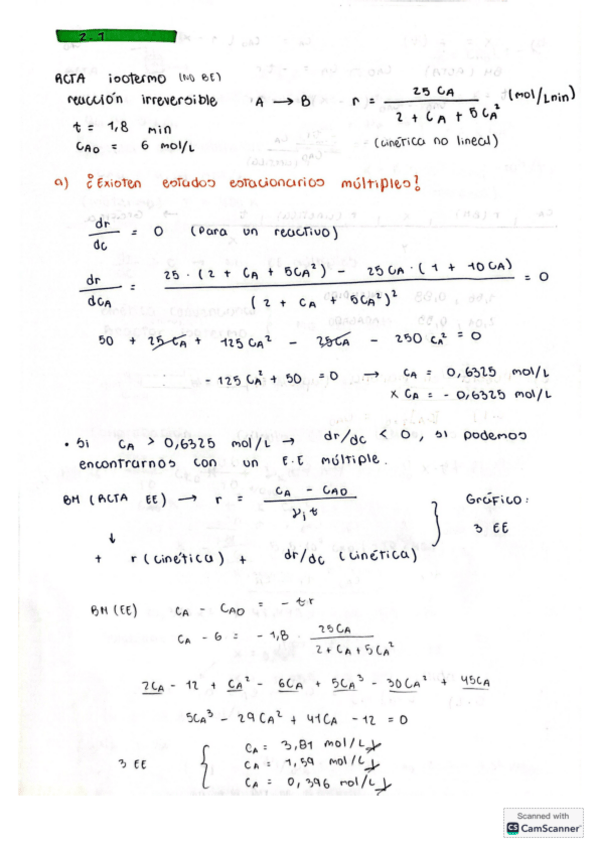 2.1
ACTA isotermo (NO BE)
reacción irreversible A → B r = 25 CA / 2 + CA + 5CA² (mol/Lmin)
t = 1,8 min
CAO = 6 mol/L - (cinética no lineal)
a) ¿Existen estados estacionarios múltiples?
dr/dc = 0 (para un reactivo)
dr/dCA = 25 · (2 + CA + 5CA²) - 25CA · (1 + 10CA) / (2 + CA + 5CA²)² = 0
50 + 25CA + 125CA² - 25CA - 250 CA² = 0
- 125 CA² + 50 = 0 → CA = 0,6325 mol/L
x CA = - 0,6325 mol/L
• Si CA > 0,6325 mol/L → dr/dc < 0, si podemos
encontrarnos con un E.E múltiple.
BM (ACTA EE) → r = CA - CAO / γi t
Gráfico:
3 EE
↓
+ r (cinética) + dr/dc (cinética)
BM (EE) CA - CAO = - tr
CA - 6 = - 1,8 · 25CA / 2 + CA + 5CA²
2CA - 12 + CA² - 6CA + 5CA³ - 30CA² + 45CA
5CA³ - 29CA² + 41CA - 12 = 0
3 EE { CA = 3,81 mol/L
CA = 1,59 mol/L
CA = 0,396 mol/L
Scanned with
CS CamScanner